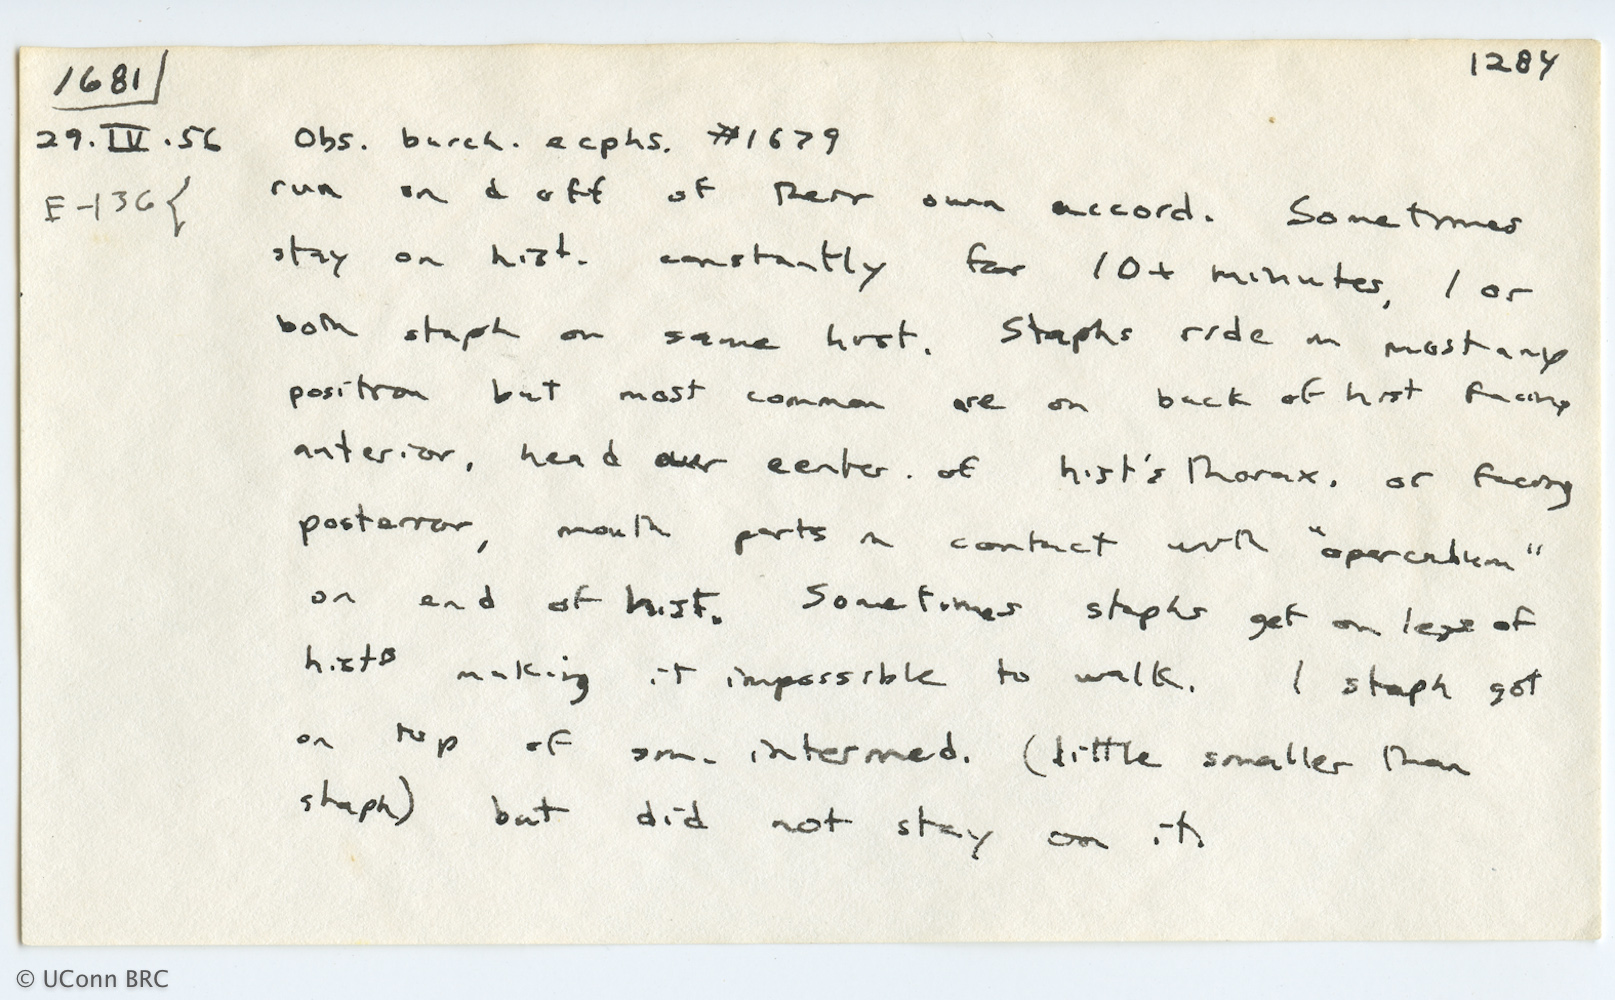 1681
1284
29.IV.56 Obs. burch. ecphs. #1679
E-136{ run on & off of their own accord. Sometimes
stay on hist. constantly for 10+ minutes, 1 or
both staph on same hist. Staphs ride in most any
position but most common are on back of hist facing
anterior, head over center. of hist's thorax. or facing
posterior, mouth parts in contact with "operculum"
on end of hist. Sometimes staphs get on legs of
hists making it impossible to walk. 1 staph got
on top of sm. intermed. (little smaller than
staph) but did not stay on it.
© UConn BRC